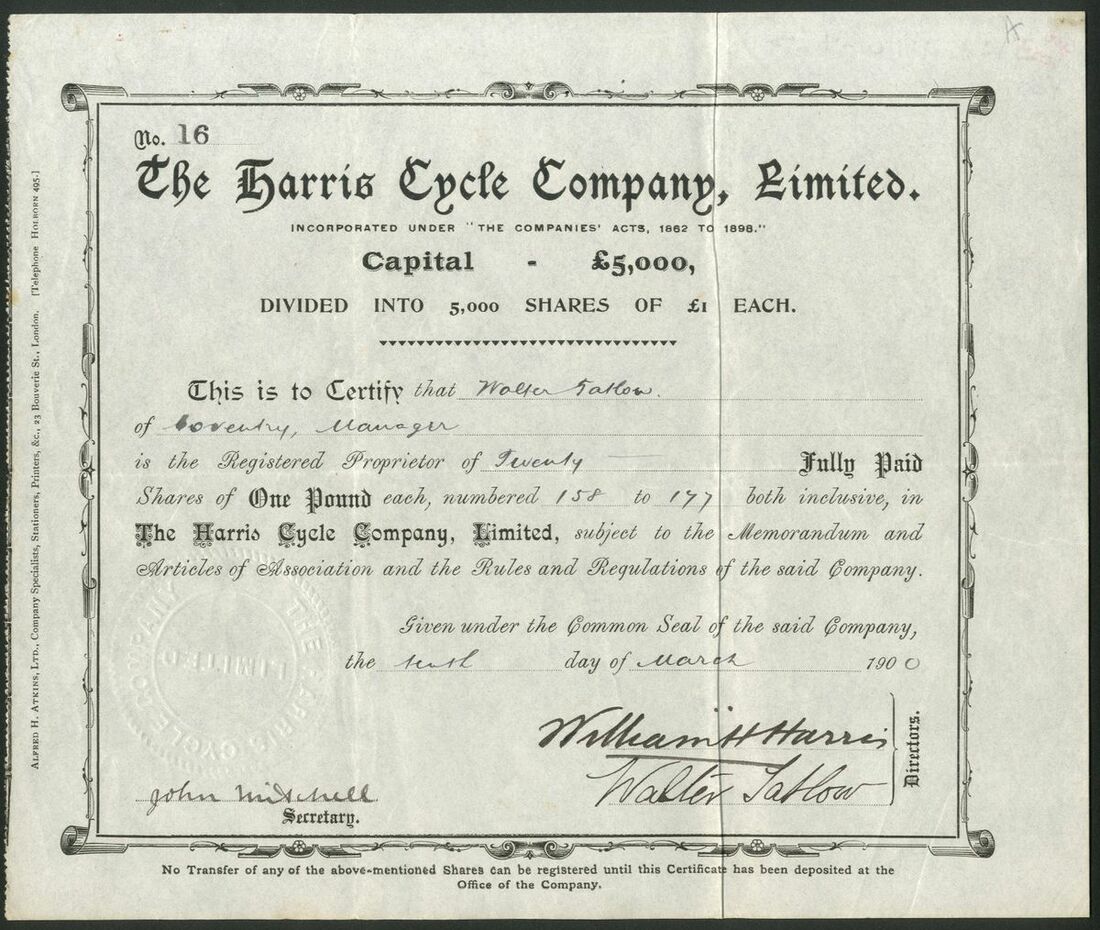 No. 16
The Harris Cycle Company, Limited.
INCORPORATED UNDER "THE COMPANIES' ACTS, 1862 TO 1898."
Capital - £5,000,
DIVIDED INTO 5,000 SHARES OF £1 EACH.
This is to Certify that Walter Tatlow.
of Coventry, Manager
is the Registered Proprietor of Twenty Fully Paid
Shares of One Pound each, numbered 158 to 177 both inclusive, in
The Harris Cycle Company, Limited, subject to the Memorandum and
Articles of Association and the Rules and Regulations of the said Company.
Given under the Common Seal of the said Company,
the tenth day of March 1900
William H Harris
Walter Tatlow
Directors.
John Mitchell
Secretary.
THE HARRIS CYCLE COMPANY
LIMITED
No Transfer of any of the above-mentioned Shares can be registered until this Certificate has been deposited at the
Office of the Company.
ALFRED H. ATKINS, LTD., Company Specialists, Stationers, Printers, &c., 23 Bouverie St., London. [Telephone HOLBORN 495.]
A